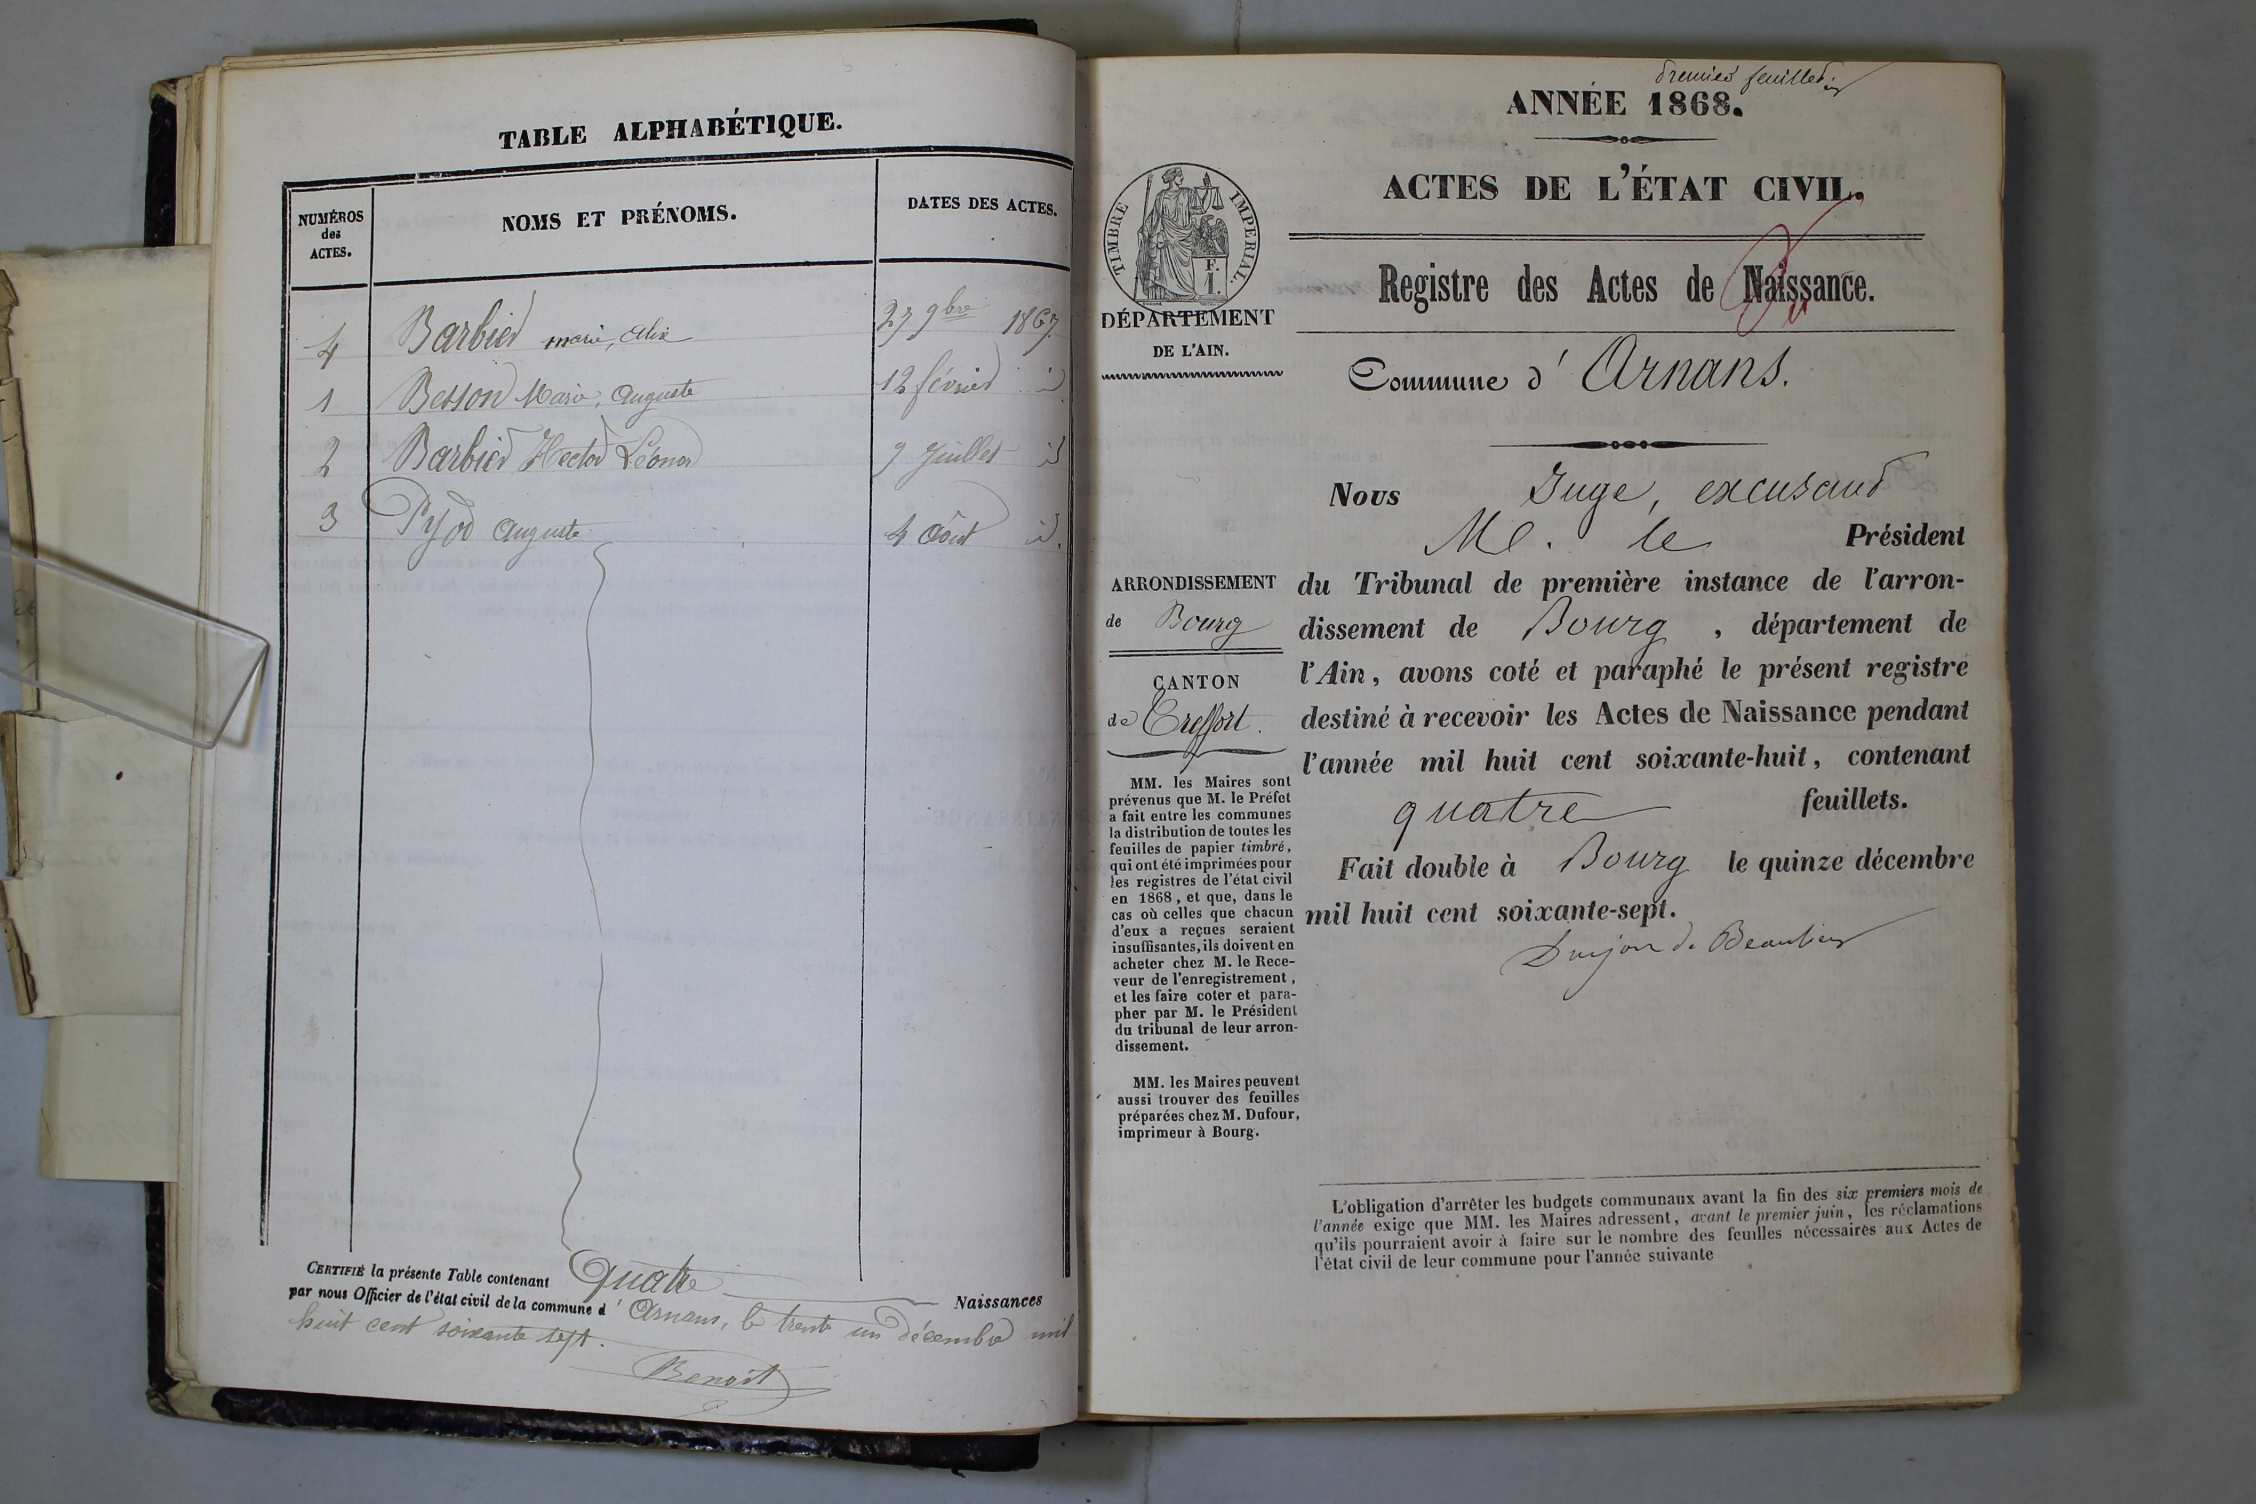 TABLE ALPHABÉTIQUE.
NUMÉROS
des
ACTES.
NOMS ET PRÉNOMS.
DATES DES ACTES.
4 Barbier marie, Alix 27 9bre 1867
1 Besson Marie, Auguste 12 février id
2 Barbier Hector Léonor 9 Juillet id
3 Pyod Auguste 4 Août id.
CERTIFIÉ la présente Table contenant Quatre Naissances
par nous Officier de l'état civil de la commune d' Arnans, le trente un décembre mil
huit cent soixante sept.
Benoit
premier feuillet
ANNÉE 1868.
ACTES DE L'ÉTAT CIVIL.
TIMBRE IMPERIAL.
F.
1.
DÉPARTEMENT
DE L'AIN.
Registre des Actes de Naissance.
Commune d' Arnans.
ARRONDISSEMENT
de Bourg
CANTON
de Treffort.
MM. les Maires sont
prévenus que M. le Préfet
a fait entre les communes
la distribution de toutes les
feuilles de papier timbré,
qui ont été imprimées pour
les registres de l'état civil
en 1868, et que, dans le
cas où celles que chacun
d'eux a reçues seraient
insuffisantes, ils doivent en
acheter chez M. le Rece-
veur de l'enregistrement,
et les faire coter et para-
pher par M. le Président
du tribunal de leur arron-
dissement.
MM. les Maires peuvent
aussi trouver des feuilles
préparées chez M. Dufour,
imprimeur à Bourg.
Nous Juge, excusant
M. le Président
du Tribunal de première instance de l'arron-
dissement de Bourg, département de
l'Ain, avons coté et paraphé le présent registre
destiné à recevoir les Actes de Naissance pendant
l'année mil huit cent soixante-huit, contenant
quatre feuillets.
Fait double à Bourg le quinze décembre
mil huit cent soixante-sept.
Dujon de Beaulieu
L'obligation d'arrêter les budgets communaux avant la fin des six premiers mois de
l'année exige que MM. les Maires adressent, avant le premier juin, les réclamations
qu'ils pourraient avoir à faire sur le nombre des feuilles nécessaires aux Actes de
l'état civil de leur commune pour l'année suivante